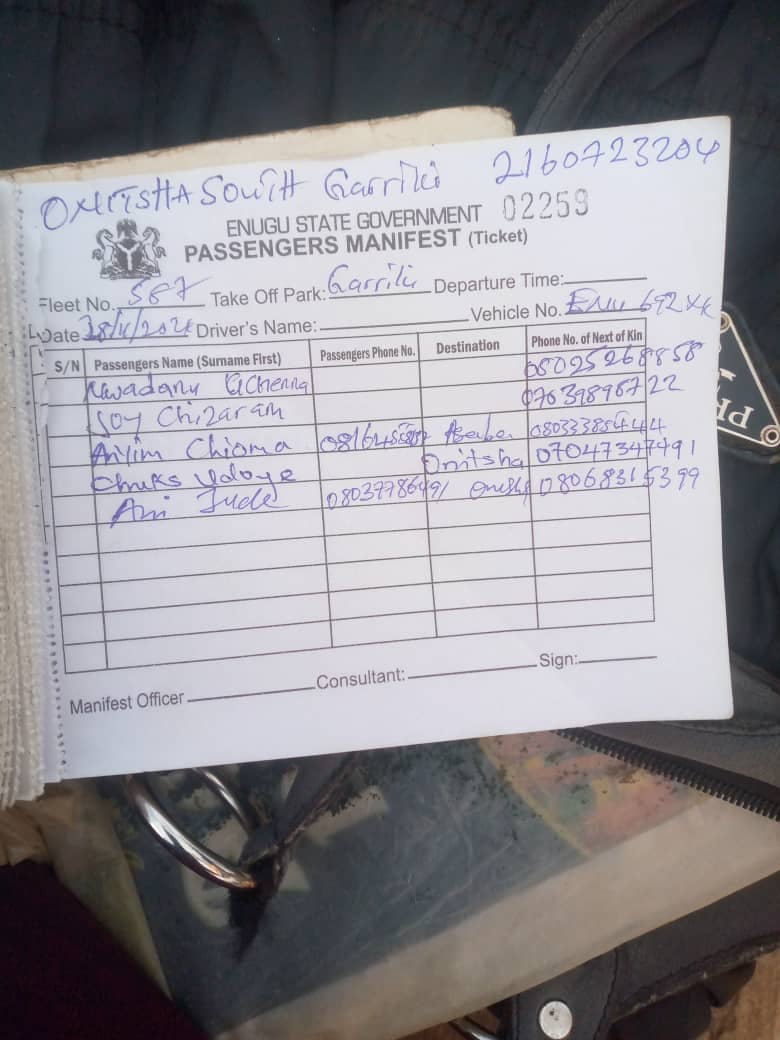 ONITSHA SOUTH Garriki 2160723204
ENUGU STATE GOVERNMENT 02259
PASSENGERS MANIFEST (Ticket)
Fleet No. 587 Take Off Park: Garriki Departure Time:
Date Driver's Name: Vehicle No. ENU 692 XK
S/N Passengers Name (Surname First) Passengers Phone No. Destination Phone No. of Next of Kin
08025268858
Soy Chizaram 07039898722
Anilim Chioma 08033385444
Chuks Udoye Onitsha 07047347491
Ani Jude 08039786491 08068315399
Manifest Officer Consultant: Sign: